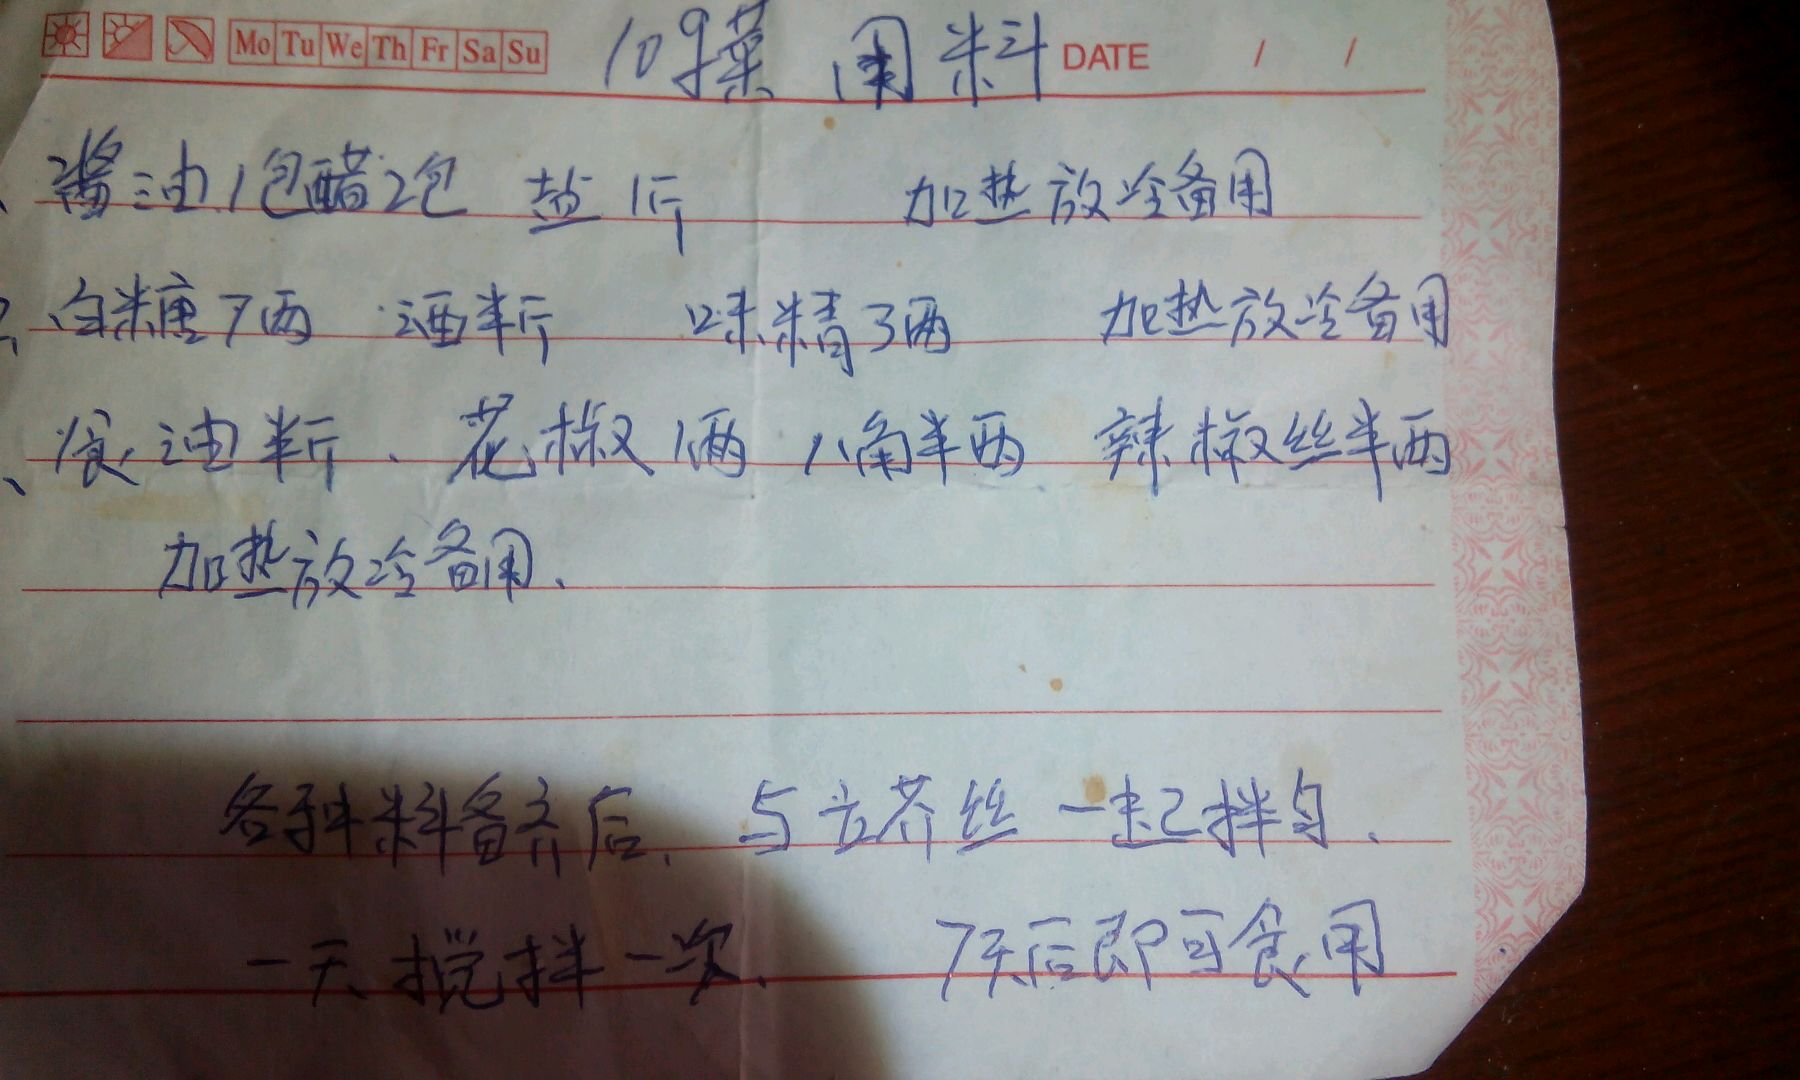 Mo Tu We Th Fr Sa Su 10斤菜 用料 DATE / /
、酱油1包醋2包 盐1斤 加热放冷备用
2、白糖7两 酒半斤 味精3两 加热放冷备用
、食油半斤、花椒1两 八角半两 辣椒丝半两
加热放冷备用、
各种料备齐后、与玄芥丝一起拌匀、
一天搅拌一次、 7天后即可食用